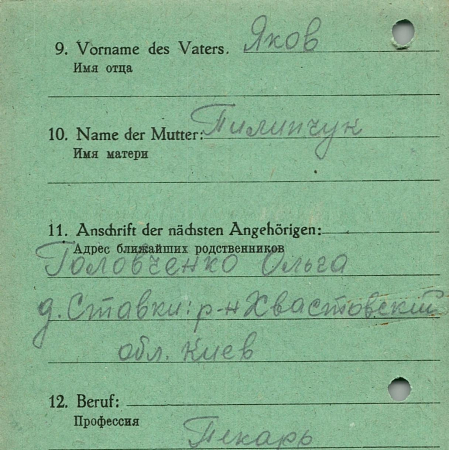 9. Vorname des Vaters. Яков
Имя отца
10. Name der Mutter: Пилипчук
Имя матери
11. Anschrift der nächsten Angehörigen:
Адрес ближайших родственников
Головченко Ольга
д. Ставки: р-н Хвастовский
обл. Киев
12. Beruf:
Профессия
Пекарь